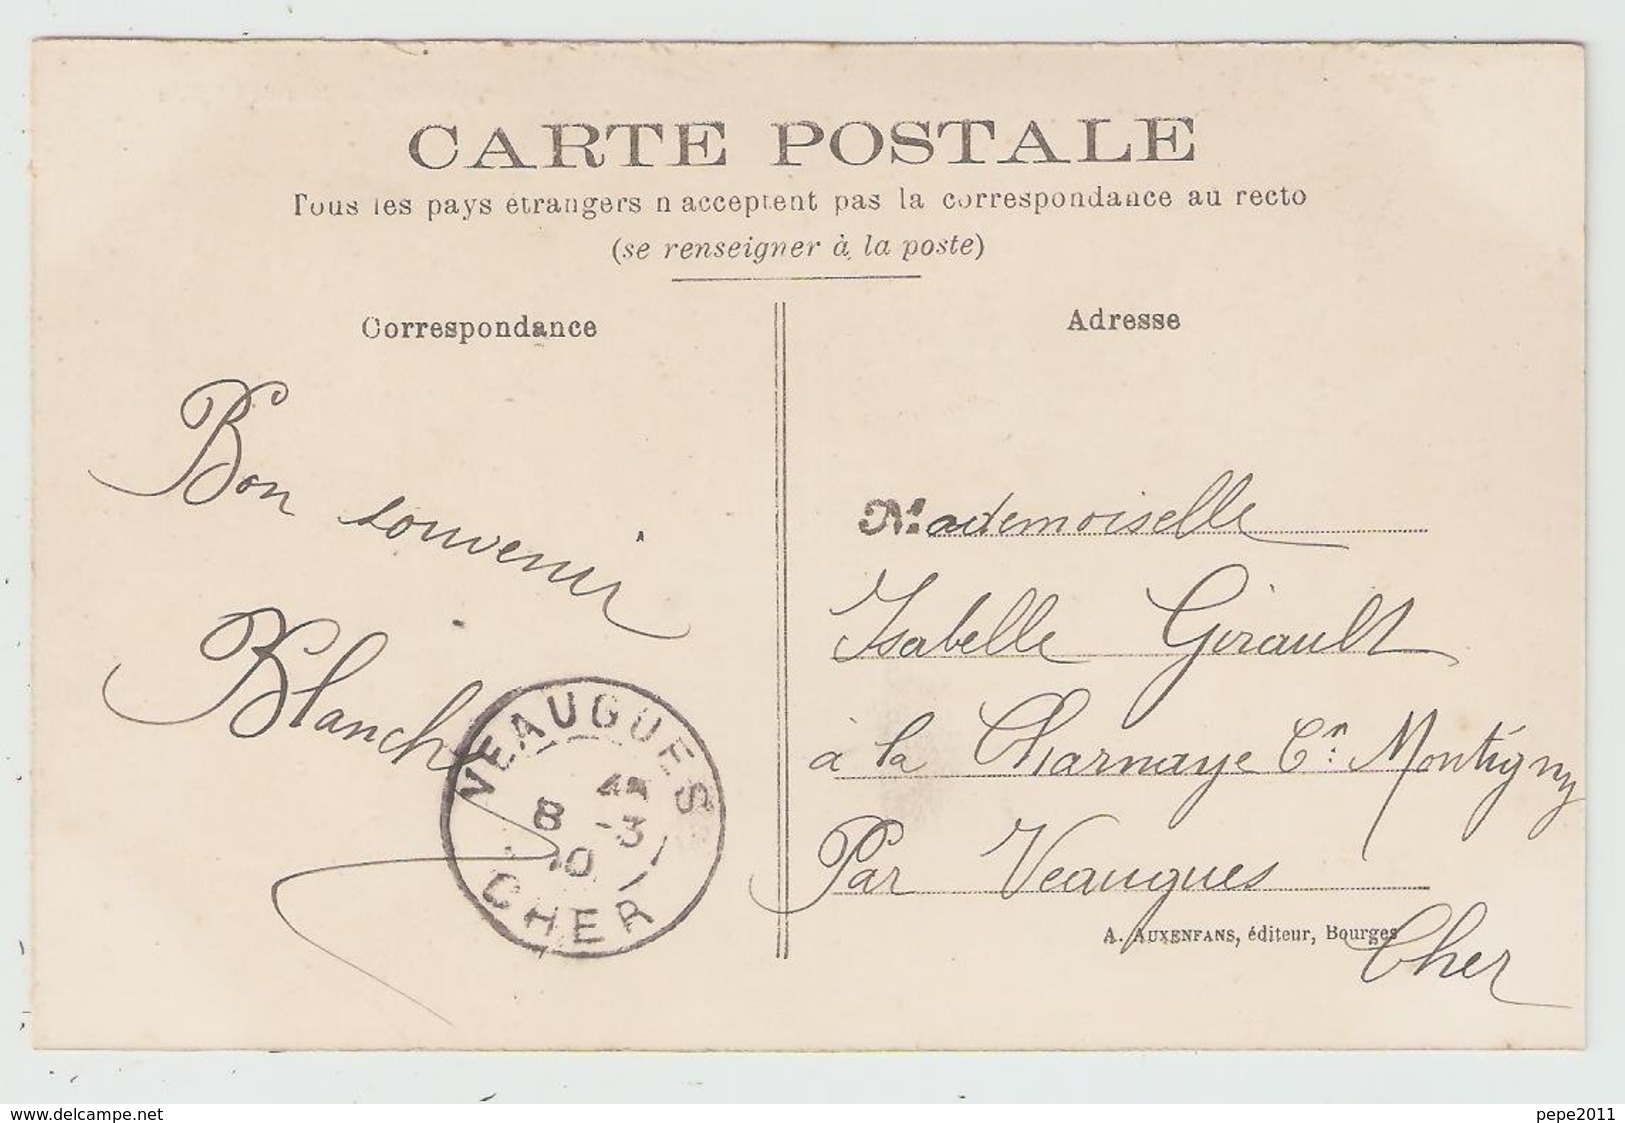 CARTE POSTALE
Tous les pays étrangers n'acceptent pas la correspondance au recto
(se renseigner à la poste)
Correspondance
Bon souvenir
Blanche
VEAUGUES
8 -3
10
CHER
Adresse
Mademoiselle
Isabelle Girault
à la Charnaye Cn. Montigny
Par Veaugues
Cher
A. AUXENFANS, éditeur, Bourges
www.delcampe.net
pepe2011